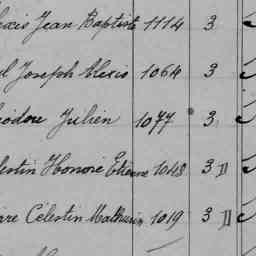 Alexis Jean Baptiste 1114 3
Joseph Alexis 1064 3
Théodore Julien 1077 3
Célestin Honoré Etienne 1048 3 D
Célestin Mathurin 1019 3 D